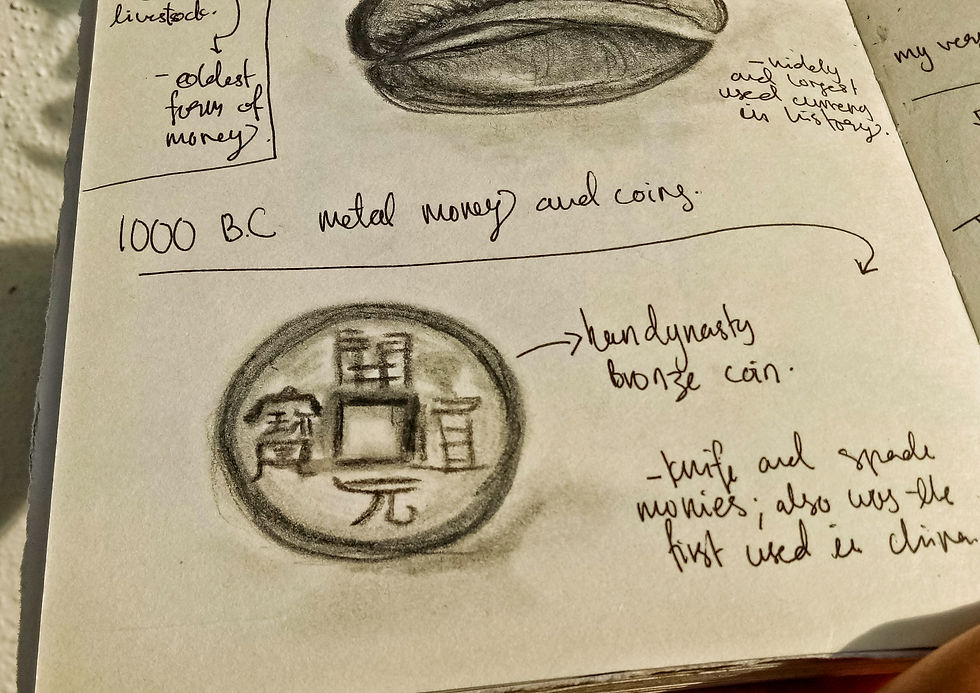 livestock.
- oldest
form of
money.
- widely
and largest
used currency
in history.
my very
1000 B.C metal money and coins.
開
寶 通
元
han dynasty
bronze coin.
- knife and spade
monies; also was the
first used in china.